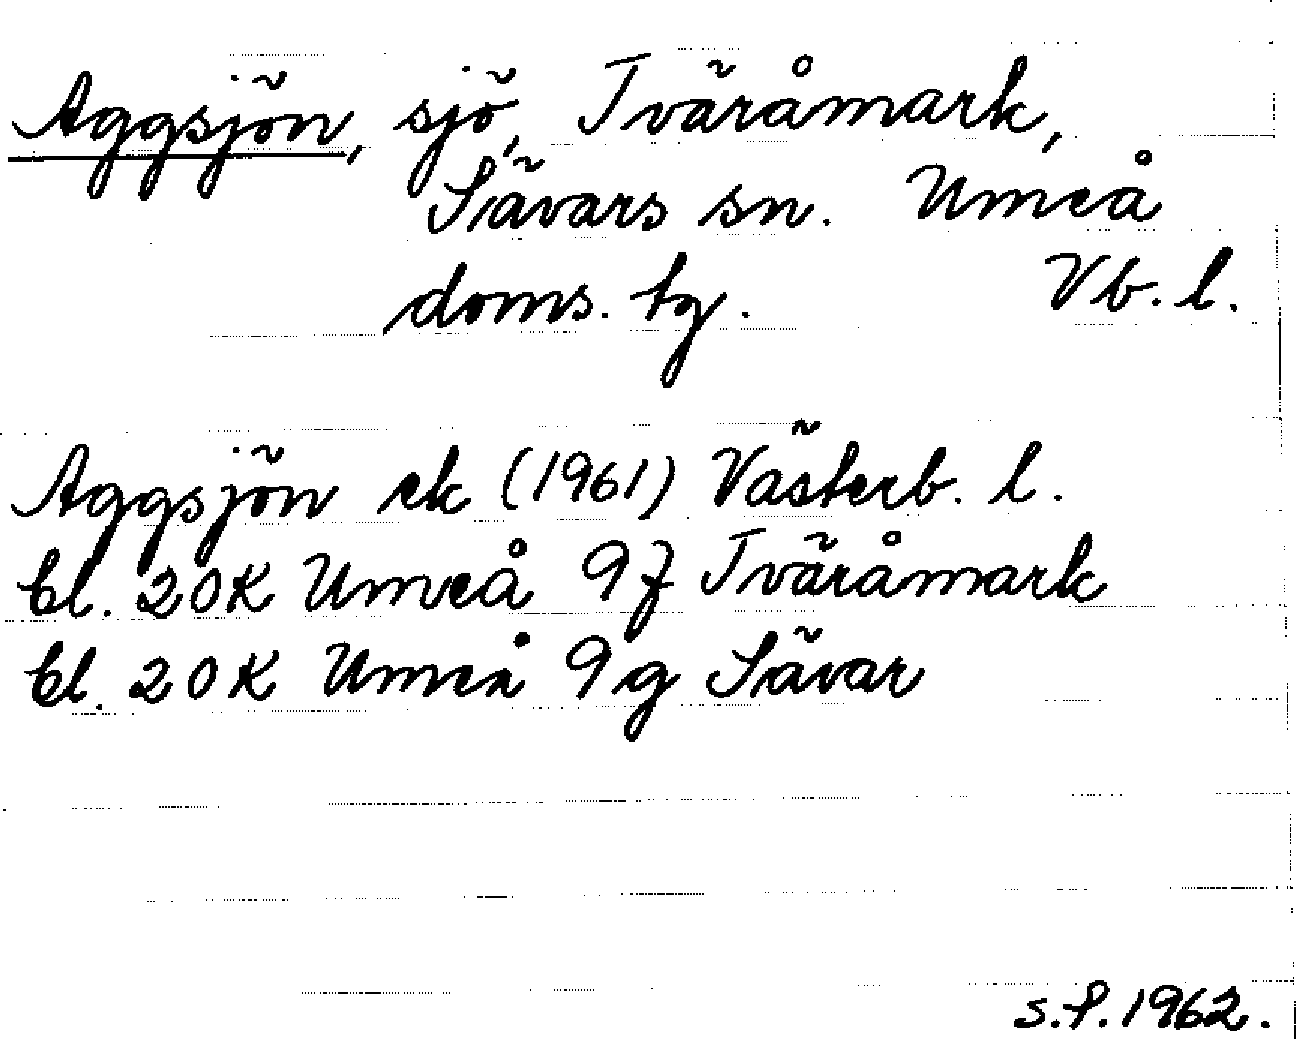 Aggsjön, sjö, Tväråmark,
Sävars sn. Umeå
doms. tg. Vb. l.
Aggsjön ek (1961) Västerb. l.
bl. 20K Umeå 9f Tväråmark
bl. 20K Umeå 9g Sävar
S.P. 1962.